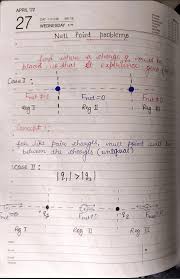 APRIL '22
27
WEDNESDAY
Null Point problems
find where a charge q should be
placed so that it experience zero
Case I :
Fnet ≠ 0 Fnet = 0 Fnet ≠ 0
Reg I Reg II Reg III
Concept :
for like point charges, null point will be
between the charges (internal)
Case II :
|q₁| > |q₂|
Fnet = 0
q₁ q₂
Reg I Reg II Reg III